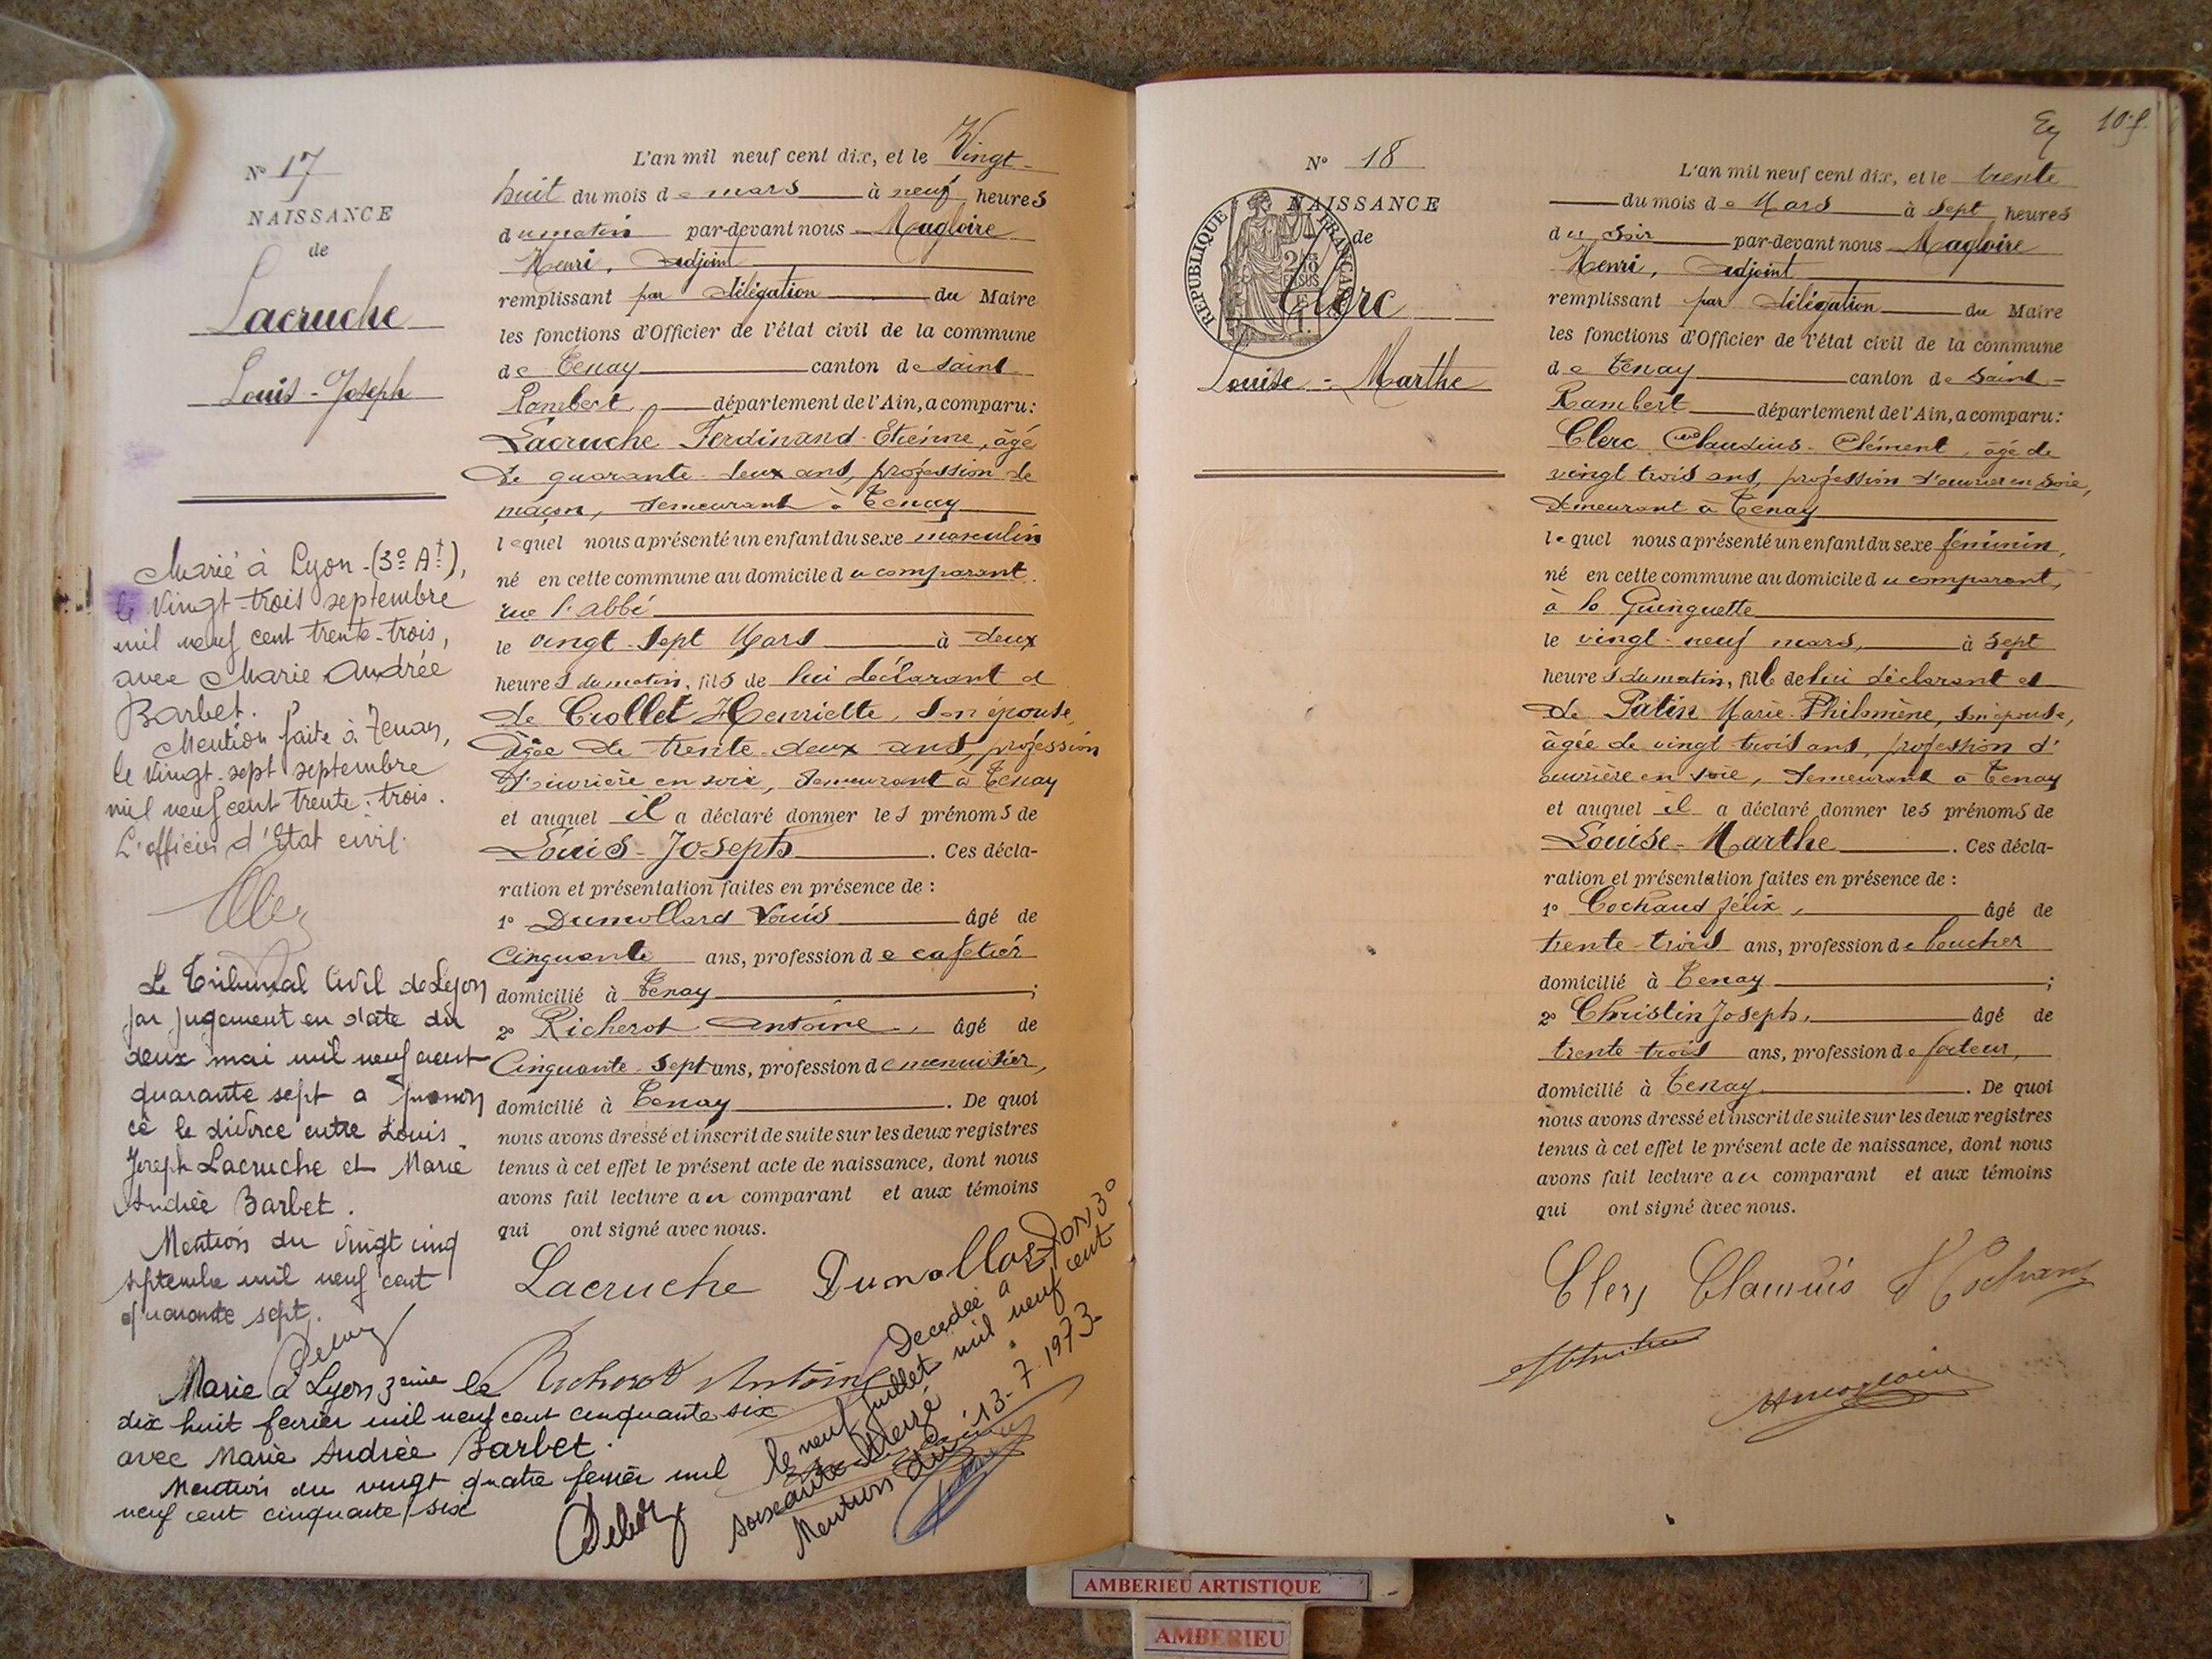 Nº 17
NAISSANCE
de
Lacruche
Louis-Joseph
Marié à Lyon-(3º At),
le vingt-trois septembre
mil neuf cent trente-trois,
avec Marie Andrée
Barbet.
Mention faite à Tenay,
le vingt-sept septembre
mil neuf cent trente-trois.
L'officier d'Etat civil.
Le Tribunal Civil de Lyon
par jugement en date du
deux mai mil neuf cent
quarante sept a pronon
cé le divorce entre Louis
Joseph Lacruche et Marie
Andrée Barbet.
Mention du vingt cinq
septembre mil neuf cent
quarante sept.
Marié à Lyon 3eme le
dix huit fevrier mil neuf cent cinquante six
avec Marie Andrée Barbet.
Mention du vingt quatre fevrier mil
neuf cent cinquante six
L'an mil neuf cent dix, et le Vingt-
huit du mois de mars à neuf heures
du matin par-devant nous Magloire
Henri, adjoint
remplissant par délégation du Maire
les fonctions d'Officier de l'état civil de la commune
de Tenay canton de Saint-
Rambert département de l'Ain, a comparu:
Lacruche Ferdinand-Etienne, âgé
de quarante-deux ans, profession de
maçon, demeurant à Tenay
lequel nous a présenté un enfant du sexe masculin
né en cette commune au domicile du comparant.
rue l'abbé
le vingt-sept Mars à deux
heures du matin, fils de lui déclarant et
de Crollet Henriette, son épouse,
âgée de trente-deux ans, profession
d'ouvrière en soie, demeurant à Tenay
et auquel il a déclaré donner les prénoms de
Louis-Joseph. Ces décla-
ration et présentation faites en présence de :
1º Dumollard Louis âgé de
Cinquante ans, profession de cafetier
domicilié à Tenay ;
2º Richerot Antoine, âgé de
Cinquante-sept ans, profession de menuisier,
domicilié à Tenay. De quoi
nous avons dressé et inscrit de suite sur les deux registres
tenus à cet effet le présent acte de naissance, dont nous
avons fait lecture au comparant et aux témoins
qui ont signé avec nous.
Lacruche Dumollard
Richerot Antoine
Decedée à Lyon 3º
le neuf juillet mil neuf cent
soixante treize
Mention du 13-7-1973-
Ey 10 f.
Nº 18
NAISSANCE
de
REPUBLIQUE FRANÇAISE
Clerc
Louise-Marthe
L'an mil neuf cent dix, et le trente
du mois de Mars à sept heures
du soir par-devant nous Magloire
Henri, adjoint
remplissant par délégation du Maire
les fonctions d'Officier de l'état civil de la commune
de Tenay canton de Saint-
Rambert département de l'Ain, a comparu:
Clerc Claudius-Clément, âgé de
vingt trois ans, profession d'ouvrier en soie,
demeurant à Tenay
lequel nous a présenté un enfant du sexe féminin,
né en cette commune au domicile du comparant,
à la Guinguette
le vingt-neuf mars, à sept
heures du matin, fille de lui déclarant et
de Patin Marie-Philomène, son épouse,
âgée de vingt trois ans, profession d'
ouvrière en soie, demeurant à Tenay
et auquel il a déclaré donner les prénoms de
Louise-Marthe. Ces décla-
ration et présentation faites en présence de :
1º Cochaud Félix, âgé de
trente-trois ans, profession de boucher
domicilié à Tenay ;
2º Christin Joseph, âgé de
trente-trois ans, profession de facteur,
domicilié à Tenay. De quoi
nous avons dressé et inscrit de suite sur les deux registres
tenus à cet effet le présent acte de naissance, dont nous
avons fait lecture au comparant et aux témoins
qui ont signé avec nous.
AMBERIEU ARTISTIQUE
AMBERIEU